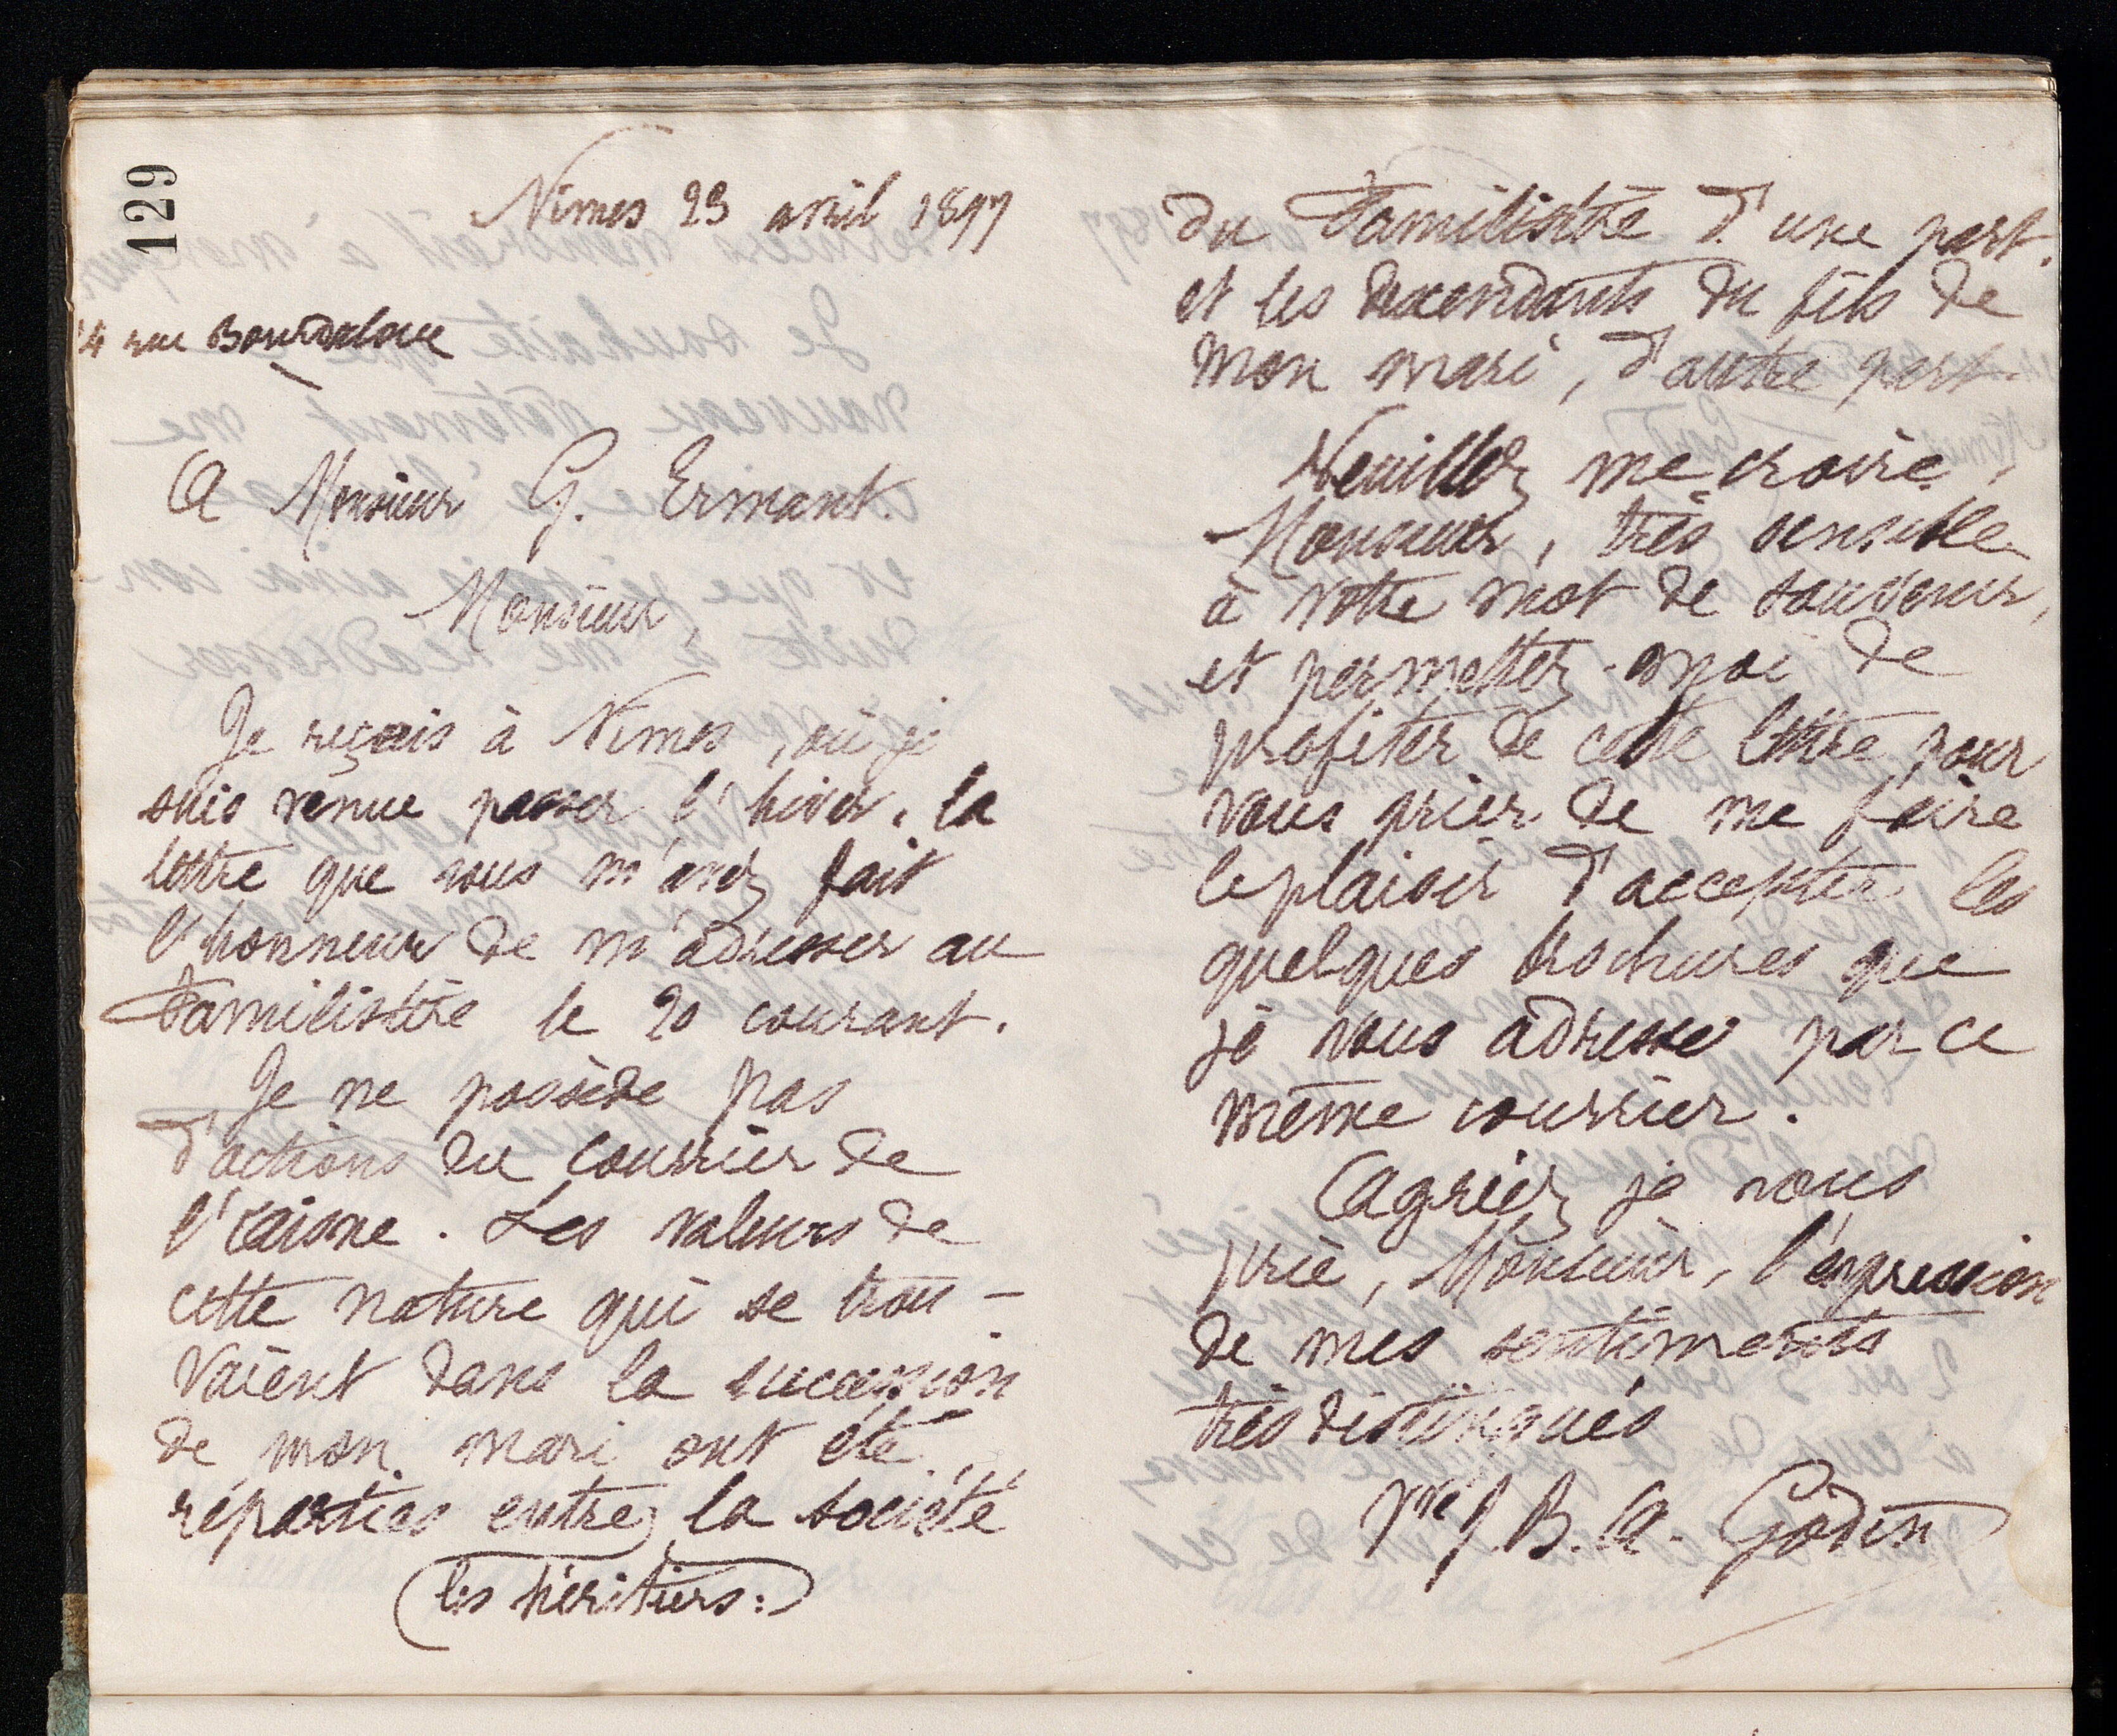 129
Nîmes 23 avril 1897
14 rue Bourdaloue
A Monsieur G. Ermant.
Monsieur,
Je reçois à Nîmes, où je
suis venue passer l'hiver, la
lettre que vous m'avez fait
l'honneur de m'adresser au
Familistère le 20 courant.
Je ne possède pas
d'actions du Courrier de
l'Aisne. Les valeurs de
cette nature qui se trou-
vaient dans la succession
de mon mari ont été
réparties entre la société
les héritiers:
du Familistère d'une part.
et les descendants du fils de
mon mari, d'autre part.
Veuillez me croire,
Monsieur, très sensible
à votre mot de souvenir,
et permettez-moi de
profiter de cette lettre pour
vous prier de me faire
le plaisir d'accepter les
quelques brochures que
je vous adresse par ce
même courrier.
Agréez je vous
prie, Monsieur, l'expression
de mes sentiments
très distingués
Vve J. B. A. Godin